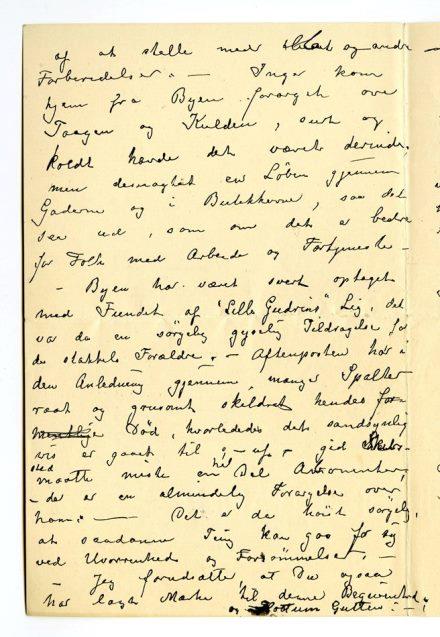 af at stelle med og andre
Forberedelser. — Inger kom
hjem fra Byen forarget over
Taagen og Kulden, surt og
koldt havde det været derinde,
men desuagtet en Løben gjennem
Gaderne og i Butikkerne, saa det
ser ud, som om det er bedre
for Folk med Arbeide og Fortjeneste —
— Byen har været svert optaget
med Fundet af "Lille Gudruns" Lig, det
var da en sørgelig gyselig Tildragelse for
de stakkels Forældre. — Aftenposten har i
den Anledning gjennem mange Spalter
raat og grusomt skildret hendes
Død, hvorledes det sandsynlig
vis er gaaet til; — gid
sted maatte miste en hel Del Abonnenter,
— der er en almindelig Forargelse over
ham. — Det er da høist sørgelig,
at saadanne Ting kan gaa for sig
ved Uvorrenhed og Forsømmelser. —
— Jeg forudsætter, at Du ogsaa
har lagt Mærke til denne Begivenhed
og Gutten. —